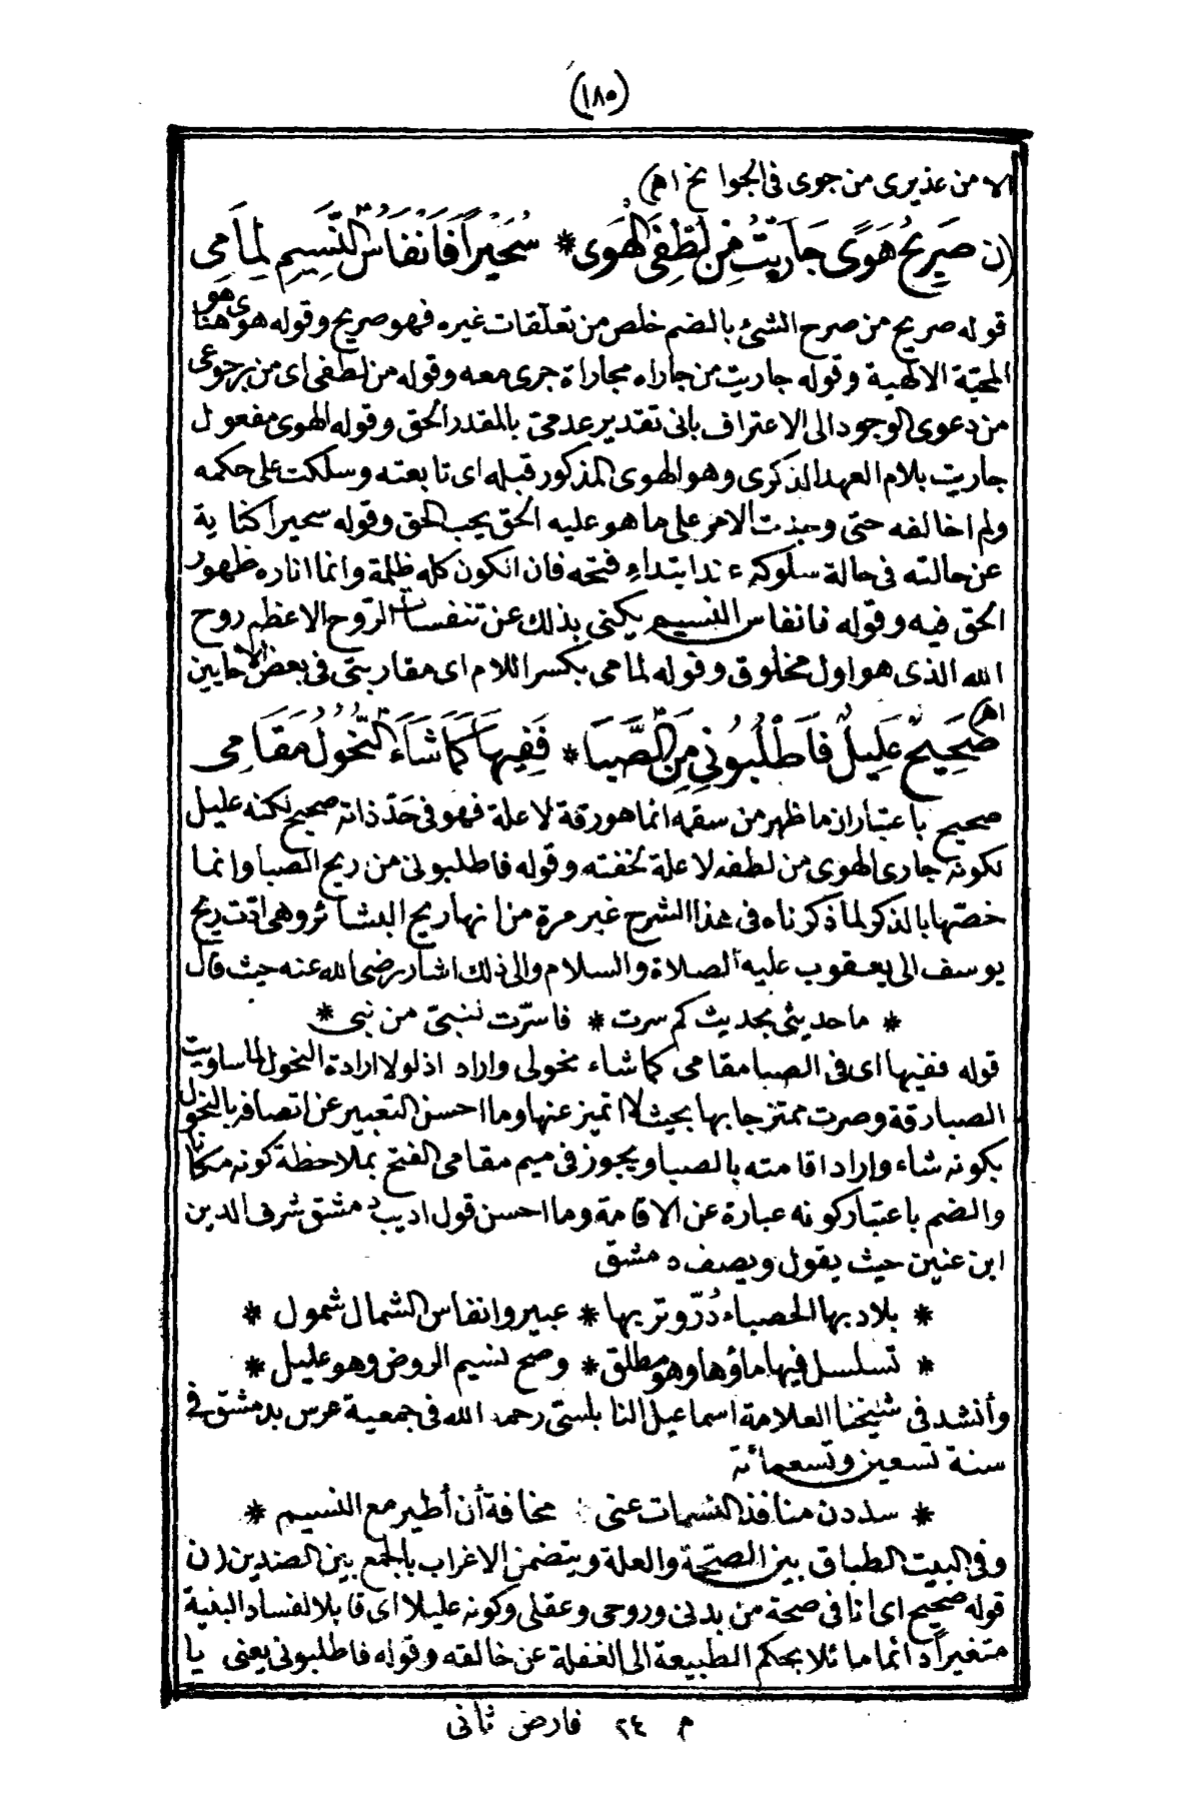 (١٨٥)
الا من عذيرى من جوى فى الجوانح (اهـ)
(ن صَرِيحُ هَوًى جَارَيْتُ مِنْ لُطْفِيَ الهَوَى * سُحَيْراً فَأَنْفَاسُ النَّسِيمِ لِمَامِى
قوله صريح من صرح الشئ بالضم خلص من تعلقات غيره فهو صريح وقوله هوى هو هنا
المحبّة الالهية وقوله جاريت من جاراه مجاراة جرى معه وقوله من لطفى اى من رجوعى
من دعوى الوجود الى الاعتراف بانى تقدير عدمىّ بالمقدر الحق وقوله الهوى مفعول
جاريت بلام العهد الذكرى وهو الهوى المذكور قبله اى تابعته وسلكت على حكمه
ولم اخالفه حتى وجدت الامر على ما هو عليه الحق يحب الحق وقوله سحيرا كناية
عن حالته فى حالة سلوكه عند ابتداء فتحه فان الكون كله ظلمة وانما اناره ظهور
الحق فيه وقوله فانفاس النسيم يكنى بذلك عن تنفسات الرّوح الاعظم روح
الله الذى هو اول مخلوق وقوله لمامى بكسر اللام اى مقاربتى فى بعض الاحايين
اهـ)
صَحِيحٌ عَلِيلٌ فَاطْلُبُونِي مِنَ الصَّبَا * فَفِيهَا كَمَا شَاءَ النُّحُولُ مَقَامِى
صحيح باعتبار ان ما ظهر من سقمه انما هو رقة لا علة فهو فى حدّ ذاته صحيح لكنه عليل
لكونه جارى الهوى من لطفه لا علة لخفته وقوله فاطلبونى من ريح الصبا وانما
خصّها بالذكر لما ذكرناه فى هذا الشرح غير مرة من انها ريح البشائر وهى ادّت ريح
يوسف الى يعقوب عليه الصلاة والسلام والى ذلك اشار رضى الله عنه حيث قال
* ما حديثى بحديث كم سرت * فاسرّت لنبىّ من نبى *
قوله ففيها اى فى الصبا مقامى كما شاء نحولى واراد اذ لولا ارادة النحول لما ساويت
الصبا رقة وصرت ممتزجا بها بحيث لا اتميز عنها وما احسن التعبير عن اتصافه بالنحول
بكونه شاء واراد اقامته بالصبا ويجوز فى ميم مقامى الفتح بملاحظة كونه مكانا
والضم باعتبار كونه عبارة عن الاقامة وما احسن قول اديب دمشق شرف الدين
ابن عنين حيث يقول ويصف دمشق
* بلاد بها الحصباء دُرّ وتربها * عبير وانفاس الشمال شمول *
* تسلسل فيها ماؤها وهو مطلق * وصح نسيم الروض وهو عليل *
وأنشد فى شيخنا العلامة اسماعيل النابلسى رحمه الله فى جمعية عرس بدمشق فى
سنة تسعين وتسعمائة
* سددن منافذ النسمات عنى : مخافة أن أطير مع النسيم *
وفى البيت الطباق بين الصحّة والعلة ويتضمن الاغراب بالجمع بين الضدين (ن
قوله صحيح اى انا فى صحة من بدنى وروحى وعقلى وكونه عليلا اى قابلا لفساد البنية
متغيرا دائما مائلا بحكم الطبيعة الى الغفلة عن خالقه وقوله فاطلبونى يعنى يا
م ٢٤ فارض ثانى